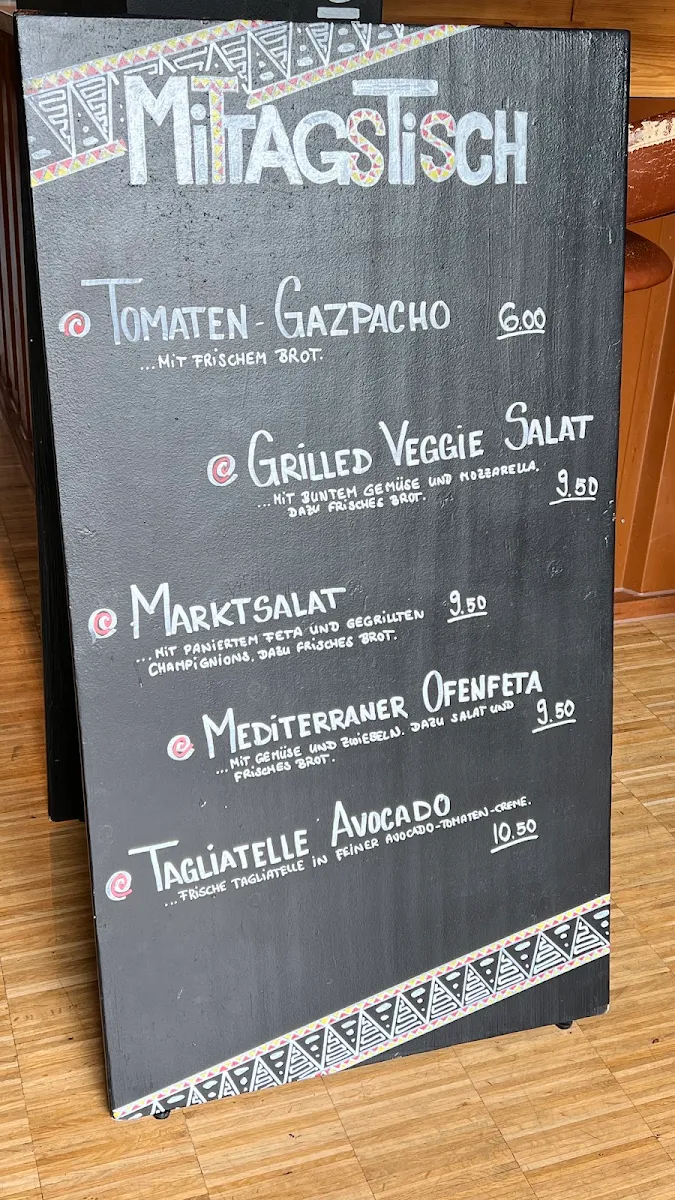 MITTAGSTISCH
TOMATEN-GAZPACHO 6.00
...MIT FRISCHEM BROT.
GRILLED VEGGIE SALAT
...MIT BUNTEM GEMÜSE UND MOZZARELLA.
DAZU FRISCHES BROT.
9.50
MARKTSALAT 9.50
...MIT PANIERTEM FETA UND GEGRILLTEN
CHAMPIGNIONS. DAZU FRISCHES BROT.
MEDITERRANER OFENFETA
...MIT GEMÜSE UND ZWIEBELN. DAZU SALAT UND
FRISCHES BROT.
9.50
TAGLIATELLE AVOCADO
...FRISCHE TAGLIATELLE IN FEINER AVOCADO-TOMATEN-CREME.
10.50